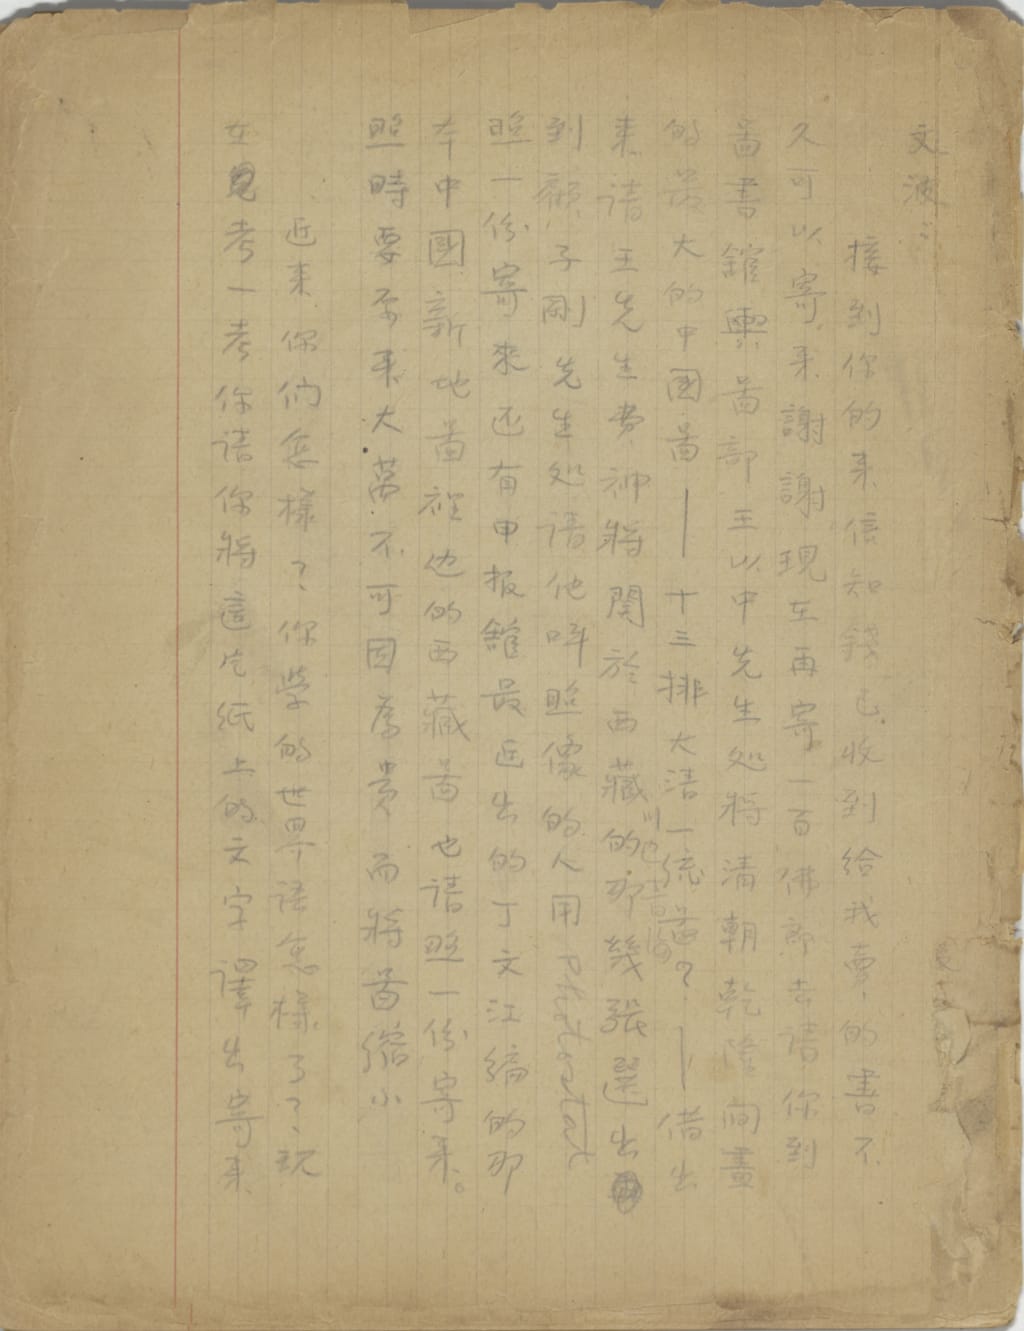 文波：
接到你的来信知錢已收到給我賣的書不
久可以寄来謝謝現在再寄一百佛郎去請你到
啚書館輿啚部王以中先生処将清朝乾隆间畫
的最大的中国啚——十三排大清一统啚？——借出
来請王先生费神将関於西藏的那幾張選出
到顧子剛先生処請他呌照像的人用
照一份寄來还有申报館最近出的丁文江编的那
本中國新地啚裡边的西藏啚也請照一份寄来。
照時要原来大萬不可因為贵而将啚缩小
近来你们怎樣？你学的世界语怎樣了？現
在見考一考你請你将這片纸上的文字譯出寄来